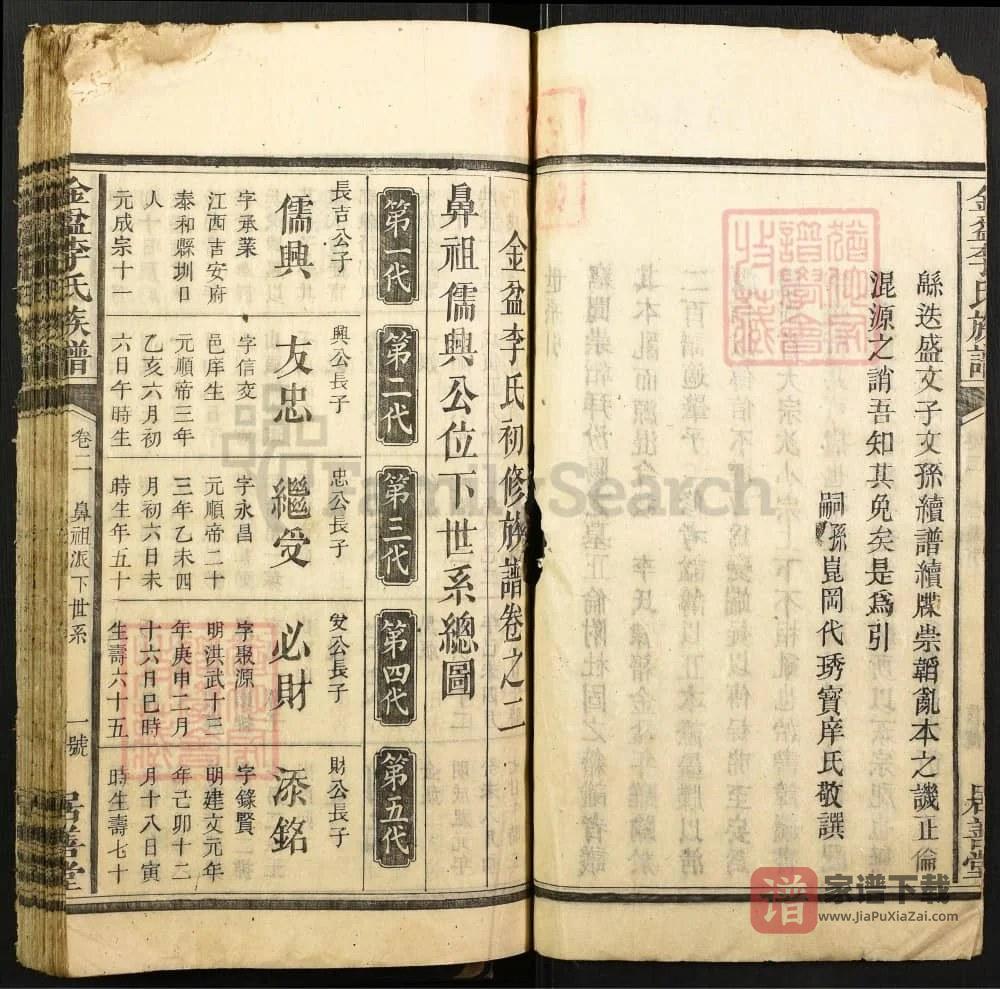 緜迭盛文子文孫續譜續牒崇韜亂本之譏正倫
混源之誚吾知其免矣是爲引
嗣孫崑岡代琇寶庠氏敬譔
金盆李氏族譜
居善堂
金盆李氏初修族譜卷之二
鼻祖儒興公位下世系總圖
第一代
第二代
第三代
第四代
第五代
長吉公子
儒興
字承業
江西吉安府
泰和縣圳口
人
元成宗十一
興公長子
友忠
字信变
邑庠生
元順帝三年
乙亥六月初
六日午時生
忠公長子
繼受
字永昌
元順帝二十
三年乙未四
月初六日未
時生年五十
受公長子
必財
字聚源
明洪武十三
年庚申二月
十六日巳時
生壽六十五
財公長子
添銘
字錄賢
明建文元年
年己卯十二
月十八日寅
時生壽七十
金盆李氏族譜
卷二
鼻祖派下世系
一號
居善堂
FamilySearch
譜
家谱下载
www.JiaPuXiaZai.com